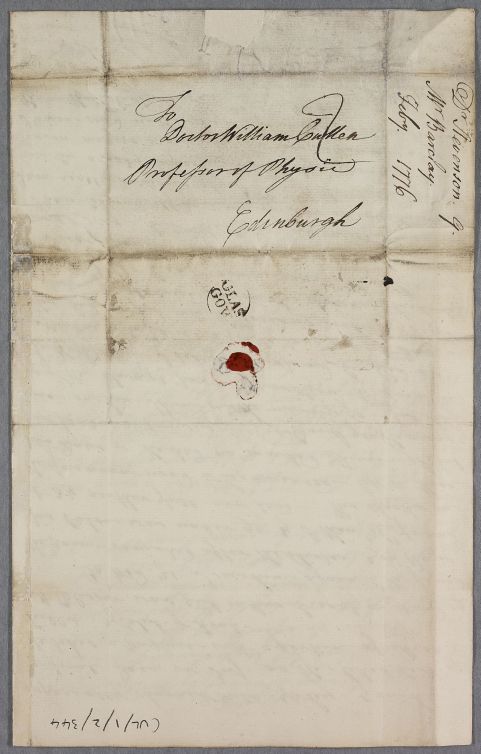 To
Doctor William Cullen
Professor of Physic
Edinburgh
2
Dr Stevenson G.
Mr Barclay
Feby 1776
GLAS
GOW
CUL/1/2/344